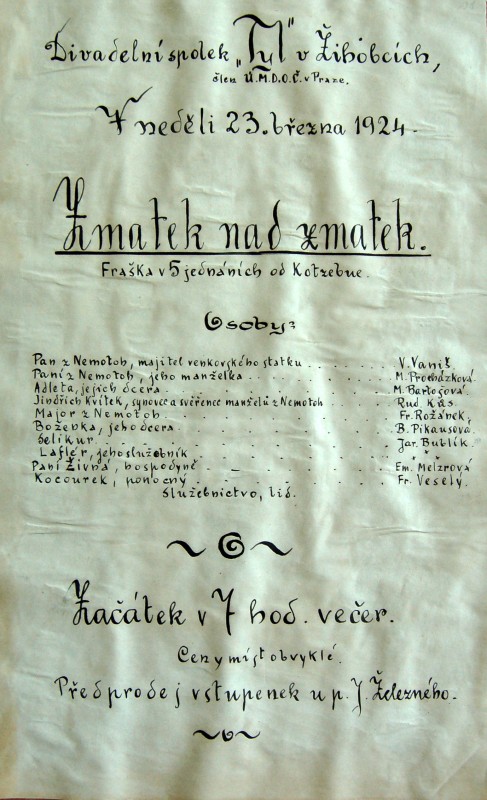 Divadelní spolek „Tyl" v Žihobcích,
člen Ú.M.D.O.Č. v Praze.
V neděli 23. března 1924.
Zmatek nad zmatek.
Fraška v 5 jednáních od Kotzebue.
Osoby:
Pan z Nemotoh, majitel venkovského statku . . . . V. Vaniš
Paní z Nemotoh, jeho manželka . . . . M. Procházková.
Adleta, jejich dcera . . . . M. Bartošová.
Jindřich Kvítek, synovec a svěřenec manželů z Nemotoh . . . . Rud. Kůs.
Major z Nemotoh . . . . Fr. Rožánek,
Boženka, jeho dcera . . . . B. Pikausová.
Selikur . . . . Jar. Bublík.
Laflér, jeho služebník . . . . " "
Paní Živná, hospodyně . . . . Em. Melzrová
Kocourek, ponocný . . . . Fr. Veselý.
Služebnictvo, lid.
Začátek v 7 hod. večer.
Ceny míst obvyklé.
Předprodej vstupenek u p. J. Železného.